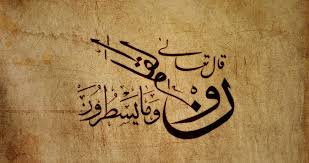 قال تعالى
ن والقلم
وما يسطرون